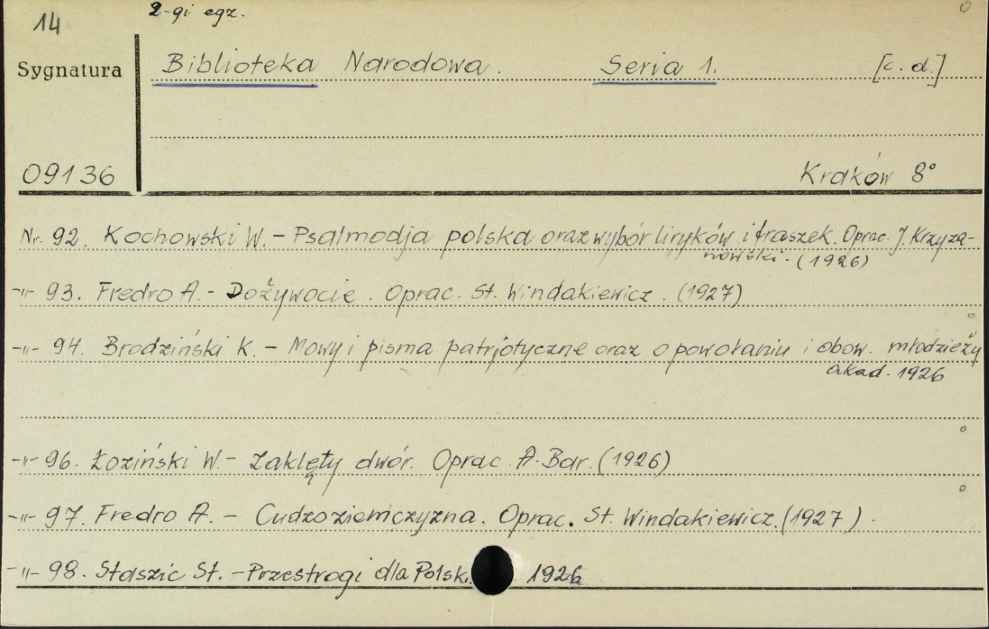 14
2-gi egz.
Sygnatura
Biblioteka Narodowa. Seria 1. [c.d.]
09136
Kraków 8°
Nr. 92. Kochowski W. - Psalmodja polska oraz wybór liryków i fraszek. Oprac. J. Krzyża-
nowski. (1926)
-"- 93. Fredro A. - Dożywocie. Oprac. St. Windakiewicz. (1927)
-"- 94. Brodziński K. - Mowy i pisma patrjotyczne oraz o powołaniu i obow. młodzieży
akad. 1926
-"- 96. Łoziński W. - Zaklęty dwór. Oprac A. Bar. (1926)
-"- 97. Fredro A. - Cudzoziemczyzna. Oprac. St. Windakiewicz. (1927).
-"- 98. Staszic St. - Przestrogi dla Polski 1926